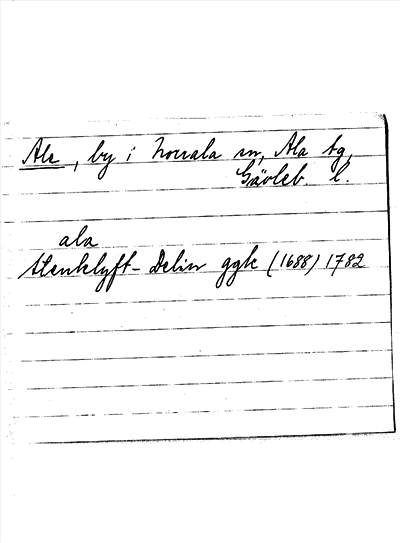 Ala, by i Norrala sn, Ala tg,
Gävleb. l.
ala
Stenklyft-Delin ggk (1688) 1782